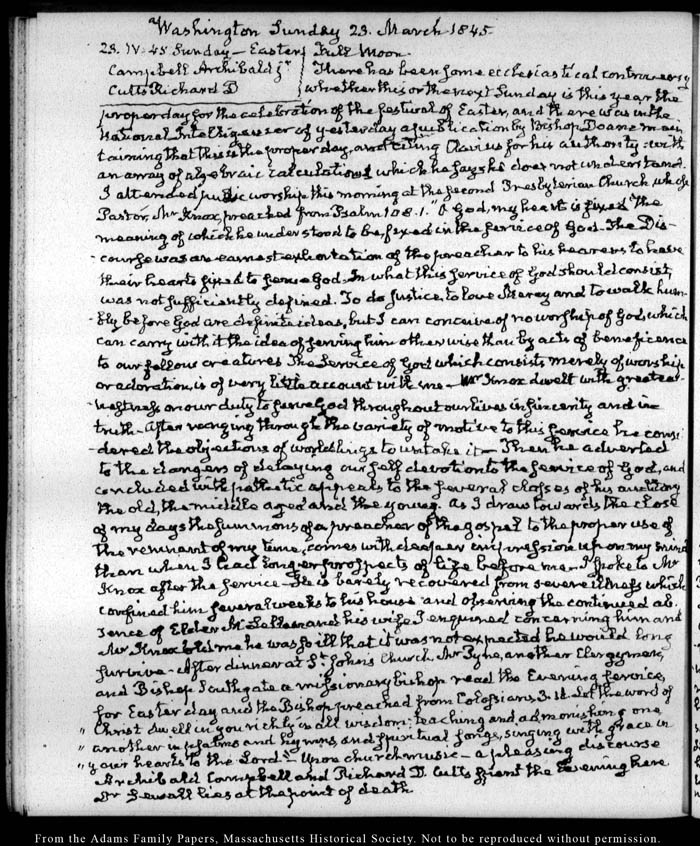 Washington Sunday 23. March 1845
23. IV:45 Sunday - Easter Full Moon
Campbell Archibald Jr There has been some ecclesiastical controversy
Cutts Richard D whether this or the next Sunday is this year the
proper day for the celebration of the festival of Easter, and there was in the
National Intelligencer of yesterday a publication by Bishop Doane main
taining that this is the proper day, and citing Clavius for his authority with
an array of algebraic calculations which he says he does not understand.
I attended public worship this morning at the Second Presbyterian Church, whose
Pastor, Mr Knox, preached from Psalm 108.1. "O God, my heart is fixed" the
meaning of which he understood to be fixed in the service of God. The Dis-
-course was an earnest exhortation of the preacher to his hearers to have
their hearts fixed to serve God. In what this service of God should consist,
was not sufficiently defined. To do justice, to love Mercy and to walk hum-
-bly before God are definite ideas, but I can conceive of no worship of God, which
can carry with it the idea of serving him otherwise than by acts of beneficence
to our fellow creatures The Service of God which consists merely of worship
or adoration, is of very little account with me - Mr Knox dwelt with great ear-
-nestness on our duty to serve God throughout our lives in sincerity and in
truth - After ranging through the variety of motive to this service he consi
-dered the objections of worldlings to it - Then he adverted
to the dangers of delaying our self devotion to the service of God, and
concluded with pathetic appeals to the several classes of his auditory
the old, the middle aged and the young. As I draw towards the close
of my days the summons of a preacher of the gospel to the proper use of
the remnant of my time, comes with deeper impression upon my mind
than when I had longer prospects of life before me - I spoke to Mr
Knox after the service - He is barely recovered from severe illness which
confined him several weeks to his house and observing the continued ab-
sence of Elder and his wife I enquired concerning him and
Mr Knox told me he was so ill that it was not expected he would long
survive - After dinner at St. John's Church Mr Pyne, another Clergyman,
and Bishop Southgate a missionary bishop read the Evening service,
for Easter day and the Bishop preached from Colossians 3.16. Let the word of
" Christ dwell in you richly in all wisdom: teaching and admonishing one
" another in psalms and hymns and spiritual songs, singing with grace in
" your hearts to the Lord" - Upon church music - a pleasing discourse
Archibald Campbell and Richard D. Cutts spent the Evening here
Dr Sewall lies at the point of death
From the Adams Family Papers, Massachusetts Historical Society. Not to be reproduced without permission.